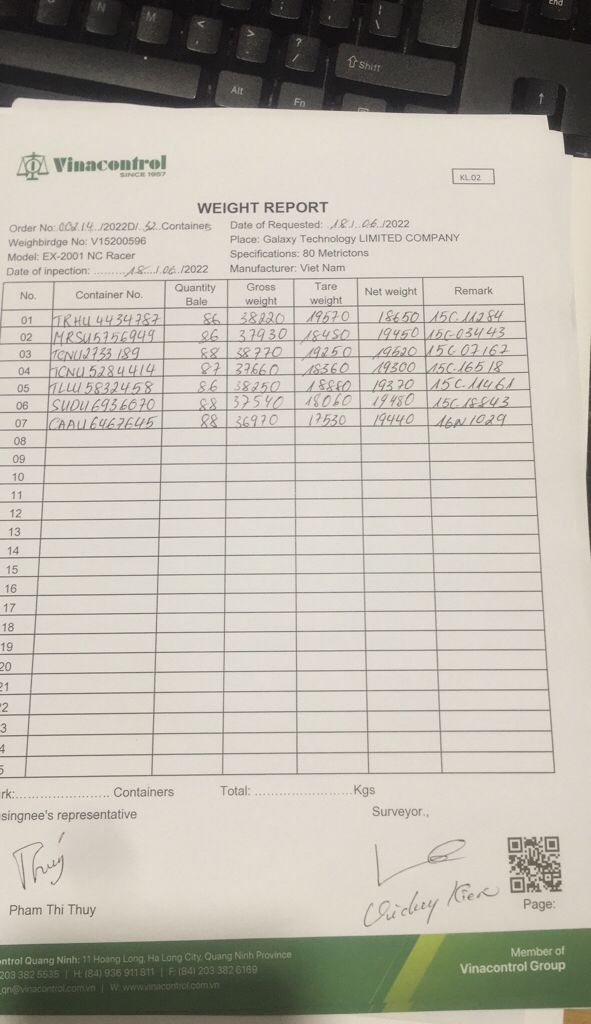 N
M
<
>
?
/
Shift
Alt
Fn
End
Vinacontrol
SINCE 1957
KL.02
WEIGHT REPORT
Order No: 0021.4../2022D/..52..Containers Date of Requested: .18.1..06../2022
Weighbirdge No: V15200596 Place: Galaxy Technology LIMITED COMPANY
Model: EX-2001 NC Racer Specifications: 80 Metrictons
Date of inpection: .........18.../.06./2022 Manufacturer: Viet Nam
No. Container No. Quantity Bale Gross weight Tare weight Net weight Remark
01 TRHU 4434787 86 38220 19570 18650 15C-11284
02 MRSU5756949 86 37930 18480 19450 15C-03443
03 TCNU2733189 88 38770 19250 19520 15C-07162
04 TCNU 5284414 87 37660 18360 19300 15C-16518
05 TLLU 5832458 86 38250 18880 19370 15C-11461
06 SUDU 6936670 88 37540 18060 19480 15C-18843
07 CAAU 6467645 88 36970 17530 19440 16N 1029
08
09
10
11
12
13
14
15
16
17
18
19
20
21
2
3
4
5
rk:....................... Containers Total: ........................Kgs
singnee's representative Surveyor.,
Thuý
Pham Thi Thuy
Page:
ntrol Quang Ninh: 11 Hoang Long, Ha Long City, Quang Ninh Province
203 382 5535 | H: (84) 936 911 811 | F: (84) 203 382 6169
.qn@vinacontrol.com.vn | W: www.vinacontrol.com.vn
Member of
Vinacontrol Group